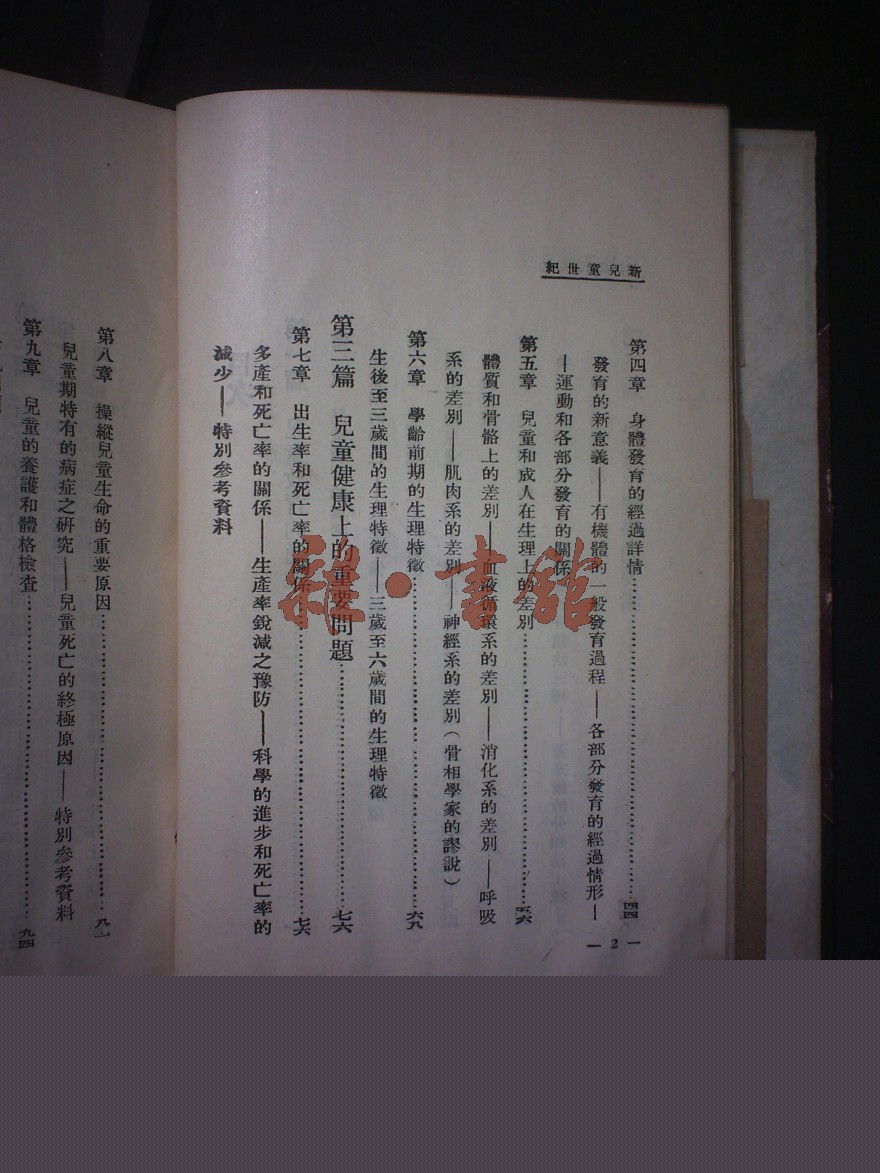 新兒童世紀
第四章　身體發育的經過詳情……四四
發育的新意義——有機體的一般發育過程——各部分發育的經過情形—
—運動和各部分發育的關係
第五章　兒童和成人在生理上的差別……五六
體質和骨骼上的差別——血液循環系的差別——消化系的差別——呼吸
系的差別——肌肉系的差別——神經系的差別（骨相學家的謬說）
第六章　學齡前期的生理特徵……六八
生後至三歲間的生理特徵——三歲至六歲間的生理特徵
第三篇　兒童健康上的重要問題……七六
第七章　出生率和死亡率的關係……七六
多產和死亡率的關係——生產率銳減之豫防——科學的進步和死亡率的
減少——特別參考資料
— 2 —
第八章　操縱兒童生命的重要原因……八一
兒童期特有的病症之研究——兒童死亡的終極原因——特別參考資料
第九章　兒童的養護和體格檢查……九四
雜·書館